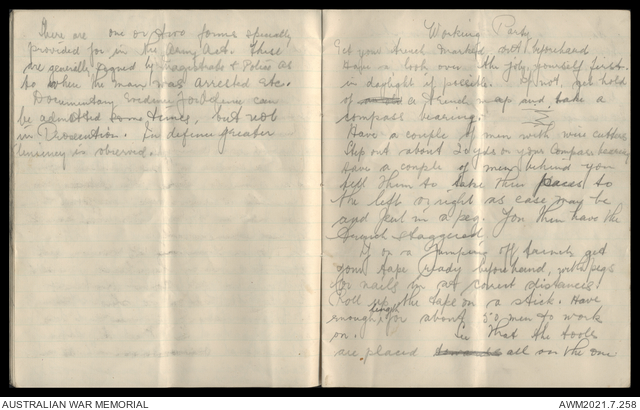 There are one or two forms specially
provided for in the Army Act. These
are generally signed by Magistrate & Police as
to when the man was arrested etc.
Documentary Evidence for Defence can
be admitted some times, but not
in Prosecution. In defence greater
leniency is observed.
Working Party
Get your trench marked out beforehand
Have a look over the job yourself first
in daylight if possible. If not, get hold
of a trench map and take a
compass bearing.
Have a couple of men with wire cutters
Step out about 20 yds on your compass bearing
Have a couple of men behind you
tell them to take three paces to
the left or right as case may be
and put in a peg. You then have the
trench staggered.
If on a jumping off trench get
your tape ready beforehand, with pegs
or nails in at correct distances.
Roll up the tape on a stick. Have
enough length for about 50 men to work
on. See that the tools
are placed all on the one
AUSTRALIAN WAR MEMORIAL
AWM2021.7.258